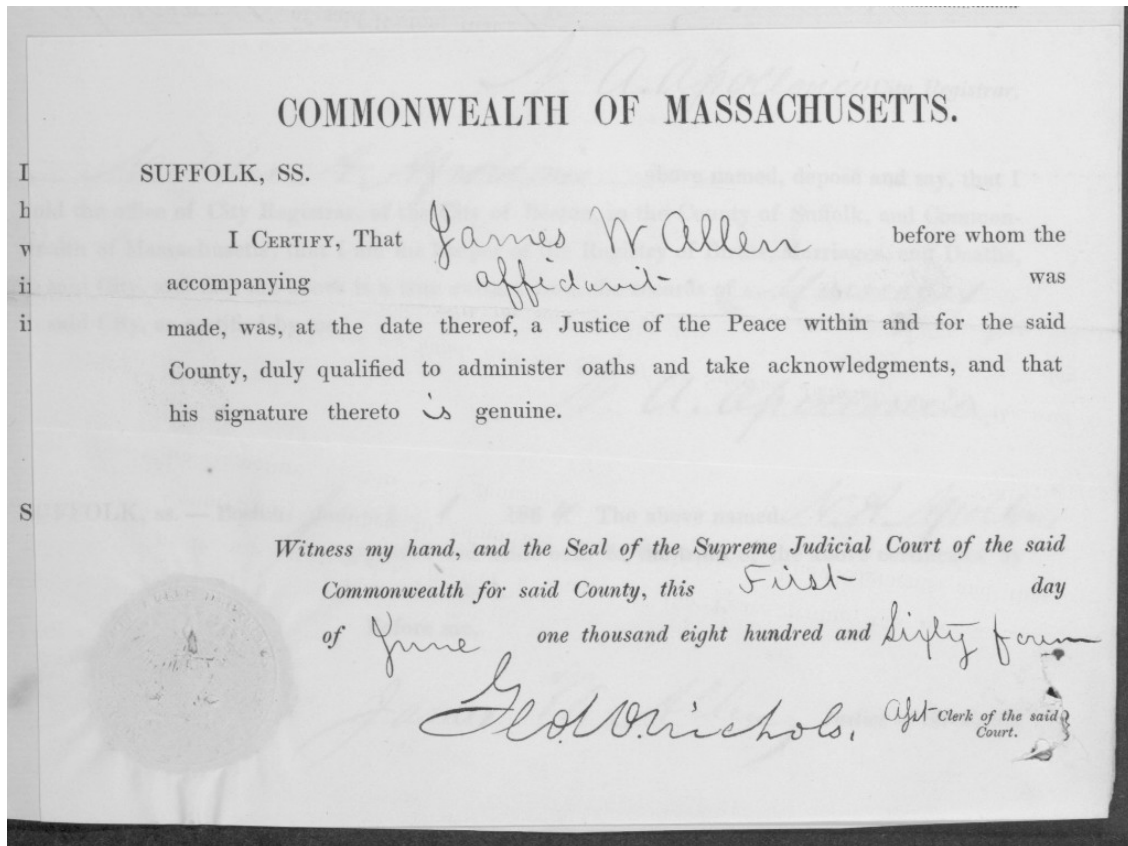 COMMONWEALTH OF MASSACHUSETTS.
SUFFOLK, SS.
I CERTIFY, That James W Allen before whom the
accompanying affidavit was
made, was, at the date thereof, a Justice of the Peace within and for the said
County, duly qualified to administer oaths and take acknowledgments, and that
his signature thereto is genuine.
Witness my hand, and the Seal of the Supreme Judicial Court of the said
Commonwealth for said County, this First day
of June one thousand eight hundred and Sixty
Geo. W. Nichols, Asst Clerk of the said
Court.